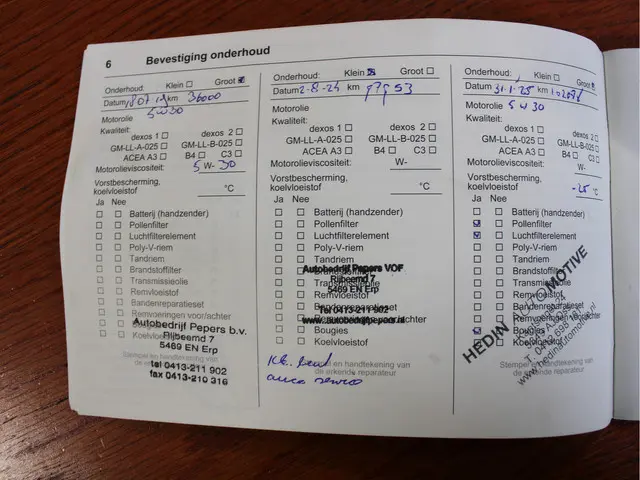 6 Bevestiging onderhoud
Onderhoud: Klein ☐ Groot ☒
Datum km 36000
Motorolie 5W30
Kwaliteit:
dexos 1 ☐ dexos 2 ☐
GM-LL-A-025 ☐ GM-LL-B-025 ☐
ACEA A3 ☐ B4 ☐ C3 ☐
Motorolieviscositeit: 5 W- 30
Vorstbescherming,
koelvloeistof °C
Ja Nee
☐ ☐ Batterij (handzender)
☐ ☐ Pollenfilter
☐ ☐ Luchtfilterelement
☐ ☐ Poly-V-riem
☐ ☐ Tandriem
☐ ☐ Brandstoffilter
☐ ☐ Transmissieolie
☐ ☐ Remvloeistof
☐ ☐ Bandenreparatieset
☐ ☐ Remvoeringen voor/achter
Autobedrijf Pepers b.v.
Rijbeemd 7
5469 EN Erp
☐ ☐ Koelvloeistof
Stempel en handtekening van
tel 0413-211 902
fax 0413-210 316
Onderhoud: Klein ☒ Groot ☐
Datum 2-8-24 km
Motorolie
Kwaliteit:
dexos 1 ☐ dexos 2 ☐
GM-LL-A-025 ☐ GM-LL-B-025 ☐
ACEA A3 ☐ B4 ☐ C3 ☐
Motorolieviscositeit: W-
Vorstbescherming,
koelvloeistof °C
Ja Nee
☐ ☐ Batterij (handzender)
☐ ☐ Pollenfilter
☐ ☐ Luchtfilterelement
☐ ☐ Poly-V-riem
☐ ☐ Tandriem
Autobedrijf Pepers VOF
Rijbeemd 7
☐ ☐ Transmissieolie
5469 EN Erp
☐ ☐ Remvloeistof
☐ ☐ Bandenreparatieset
Tel 0413-211 902
www.autobedrijfpepers.nl
☐ ☐ Bougies
☐ ☐ Koelvloeistof
Stempel en handtekening van
de erkende reparateur
Onderhoud: Klein ☐ Groot ☒
Datum 31.1.25 km
Motorolie 5W30
Kwaliteit:
dexos 1 ☐ dexos 2 ☐
GM-LL-A-025 ☐ GM-LL-B-025 ☐
ACEA A3 ☐ B4 ☐ C3 ☐
Motorolieviscositeit: W-
Vorstbescherming,
koelvloeistof -25 °C
Ja Nee
☐ ☐ Batterij (handzender)
☒ ☐ Pollenfilter
☒ ☐ Luchtfilterelement
☐ ☐ Poly-V-riem
☐ ☐ Tandriem
☐ ☐ Brandstoffilter
☐ ☐ Transmissieolie
☐ ☐ Remvloeistof
☐ ☐ Bandenreparatieset
☐ ☐ Remvoeringen voor/achter
☒ ☐ Bougies
☐ ☐ Koelvloeistof
HEDIN AUTOMOTIVE
Stempel en handtekening van
de erkende reparateur